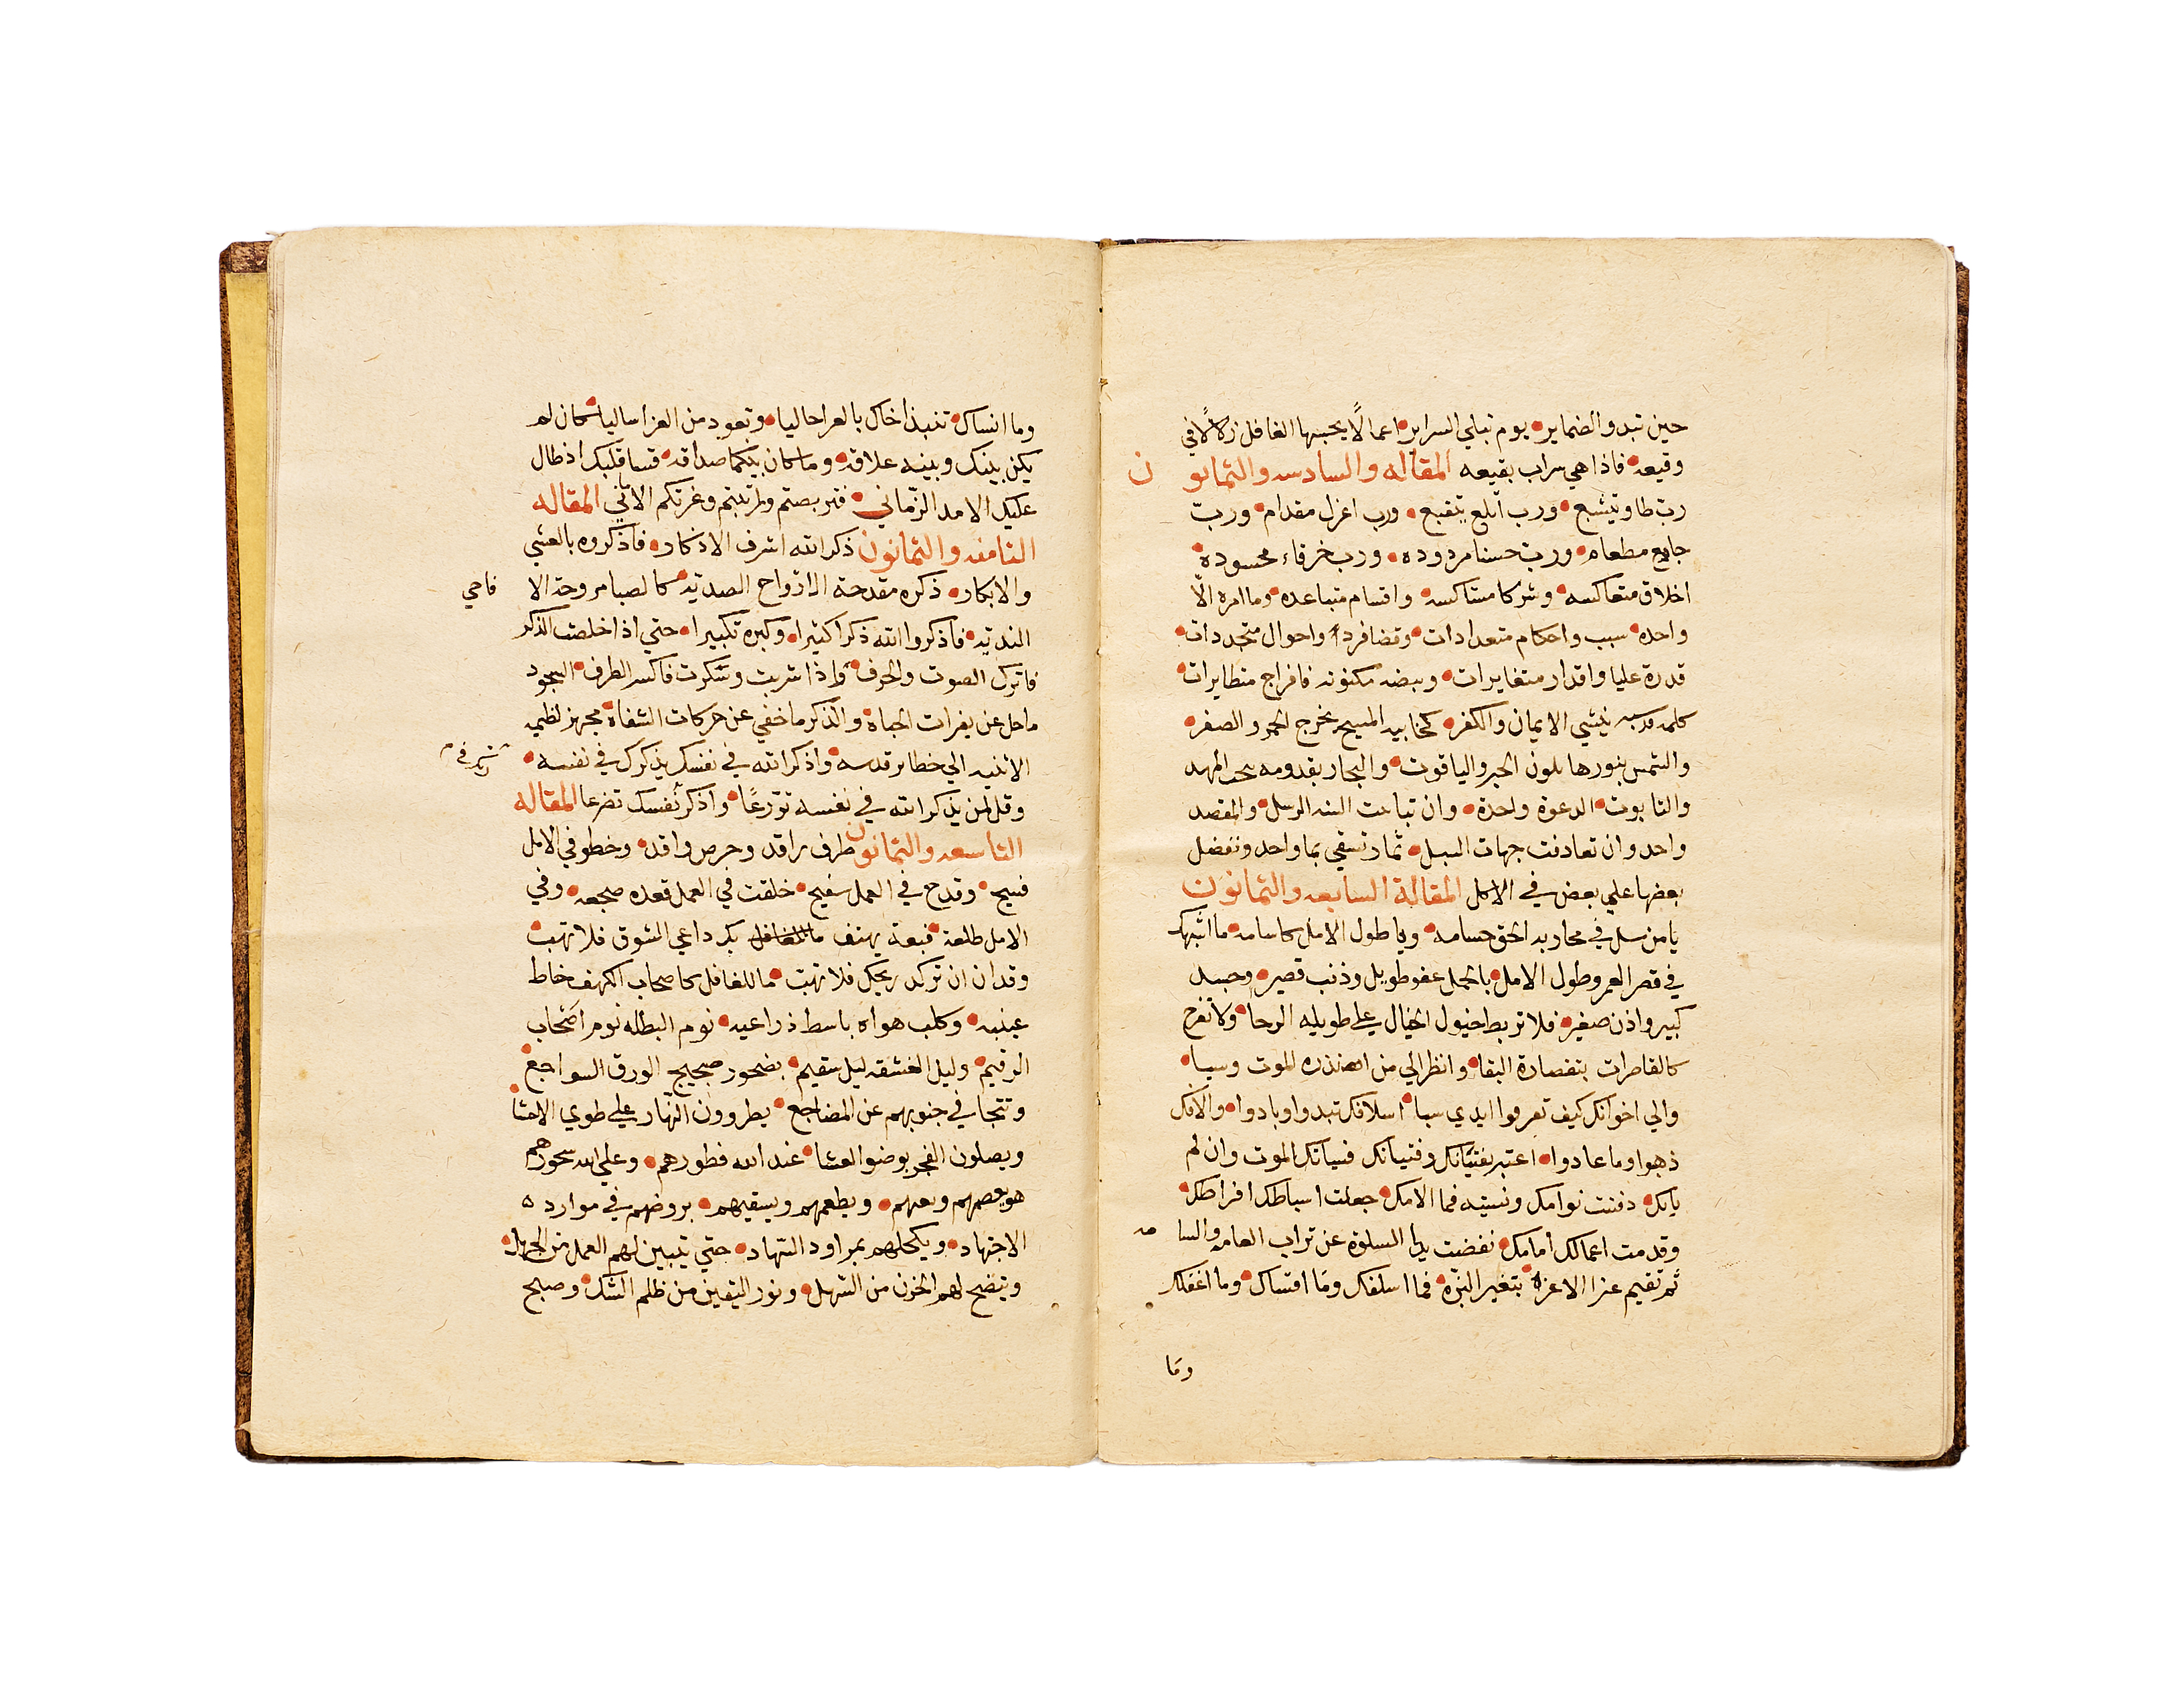 حين تبدو الضماير يوم تبلي السراير اعمالًا يحسبها الغافل زلالًا في
وقيعه فاذا هي سراب بقيعه المقاله والسادسه والثمانون
رب طاو يتشبع ورب اتلع يتقبع ورب اعزل مقدام ورب
جايع مطعام ورب حسنا مردوده ورب خرقاء محسودة
اخلاق متعاكسه وشركا متشاكسه واقسام متباعده وما امره الّا
واحده سبب واحكام متعدادات وقضا فرد واحوال متجددات
قدرة عليا واقدار متغايرات وبيضه مكنونه فافراج متطايرات
كلمه قدسيه ينشي الايمان والكفر المسيح يخرج الحمر والصفر
والشمس بنورها يلون الحجر والياقوت والنجار بقدومه ينحت المهد
والتابوت الدعوة واحدة وان تباينت السنه الرسل والمقصد
واحد وان تعادنت جهات السبل ثمار تسقي بما واحد ونفضل
بعضها علي بعض في الاكل المقالة السابعه والثمانون
يا من سل في محاربه الحق حسامه ويا طول الامل كاسامه ما اشبهك
في قصر العمر وطول الامل بالجمل عفو طويل وذنب قصير وجسد
كبير واذن صغير فلا تربط خيول الخيال علي طويله الرجا ولا تفرح
كالقاصرات بتقصارة البقا وانظر الي من نذره الموت وسبا
والي اخوانك كيف تفرقوا ايدي سبا اسلافك تبدوا وبادوا والافك
ذهبوا وما عادوا اعتبر بفتيانك وفتياتك فسياتك الموت وان لم
ياتك دفنت نوامك ونسيته فما الامك جعلت اسباطك افراطك
وقدمت اعمالك امامك نفضت يدا السلوة عن تراب العامه والسامه
ثم تقيم عزا الاعزة بتغير البزة فما اسلفك وما اقساك وما اغفلك
وما
وما انساك تنبذ اخاك بالعرا حاليا وتعود من العزا ساليا كان لم
يكن بينك وبينه علاقه وما كان بينكما صداقه قسا قلبك اذ طال
عليك الامد الزماني فتربصتم وارتبتم وغرتكم الاماني المقاله
الثامنه والثمانون ذكر الله اشرف الاذكار فاذكروه بالعشي
والابكار ذكره مقدحة الارواح الصديه كالصبا مروحة الاقاحي
النديه فاذكروا الله ذكرا كثيرا وكبره تكبيرا حتي اذا خلصت الذكر
فاترك الصوت والحرف واذا شربت وسكرت فاكسر الطرف السجود
ما حل عن نفرات الجباه والذكر ما خفي عن حركات الشفاة مجهز لطيمه
الانسيه الي حظاير قدسه واذكر الله في نفسك يذكرك في نفسه
وقل لمن يذكر الله في نفسه تورعًا واذكر نفسك تضرعا المقاله
التاسعه والثمانون طرف راقد وحرص واقد وخطو في الامل
فسيح وقدح في العمل سفيح خلقت في العمل قعده ضجعه وفي
الامل طلعة قبعة يهتف بك داعي الشوق فلا تهب
وقد ان ان تركد ريحك فلا تهب ما للغافل كاصحاب الكهف خاط
عينيه وكلب هواه باسط ذراعيه نوم البطله نوم اصحاب
الرقيم وليل العشقه ليل سقيم يضجون ضجيج الورق السواجع
وتتجافي جنوبهم عن المضاجع يطروون النهار علي طوي الاحشا
ويصلون الفجر بوضوا العشا عند الله فطورهم وعلي الله سحورهم
هو يعصمهم ويعينهم ويطعمهم ويسقيهم يروضهم في موارد
الاجتهاد ويكحلهم بمراود السهاد حتي يتبين لهم العمل من الجهل
ويتضح لهم الحزن من السهل ونور اليقين من ظلم الشك وصبح